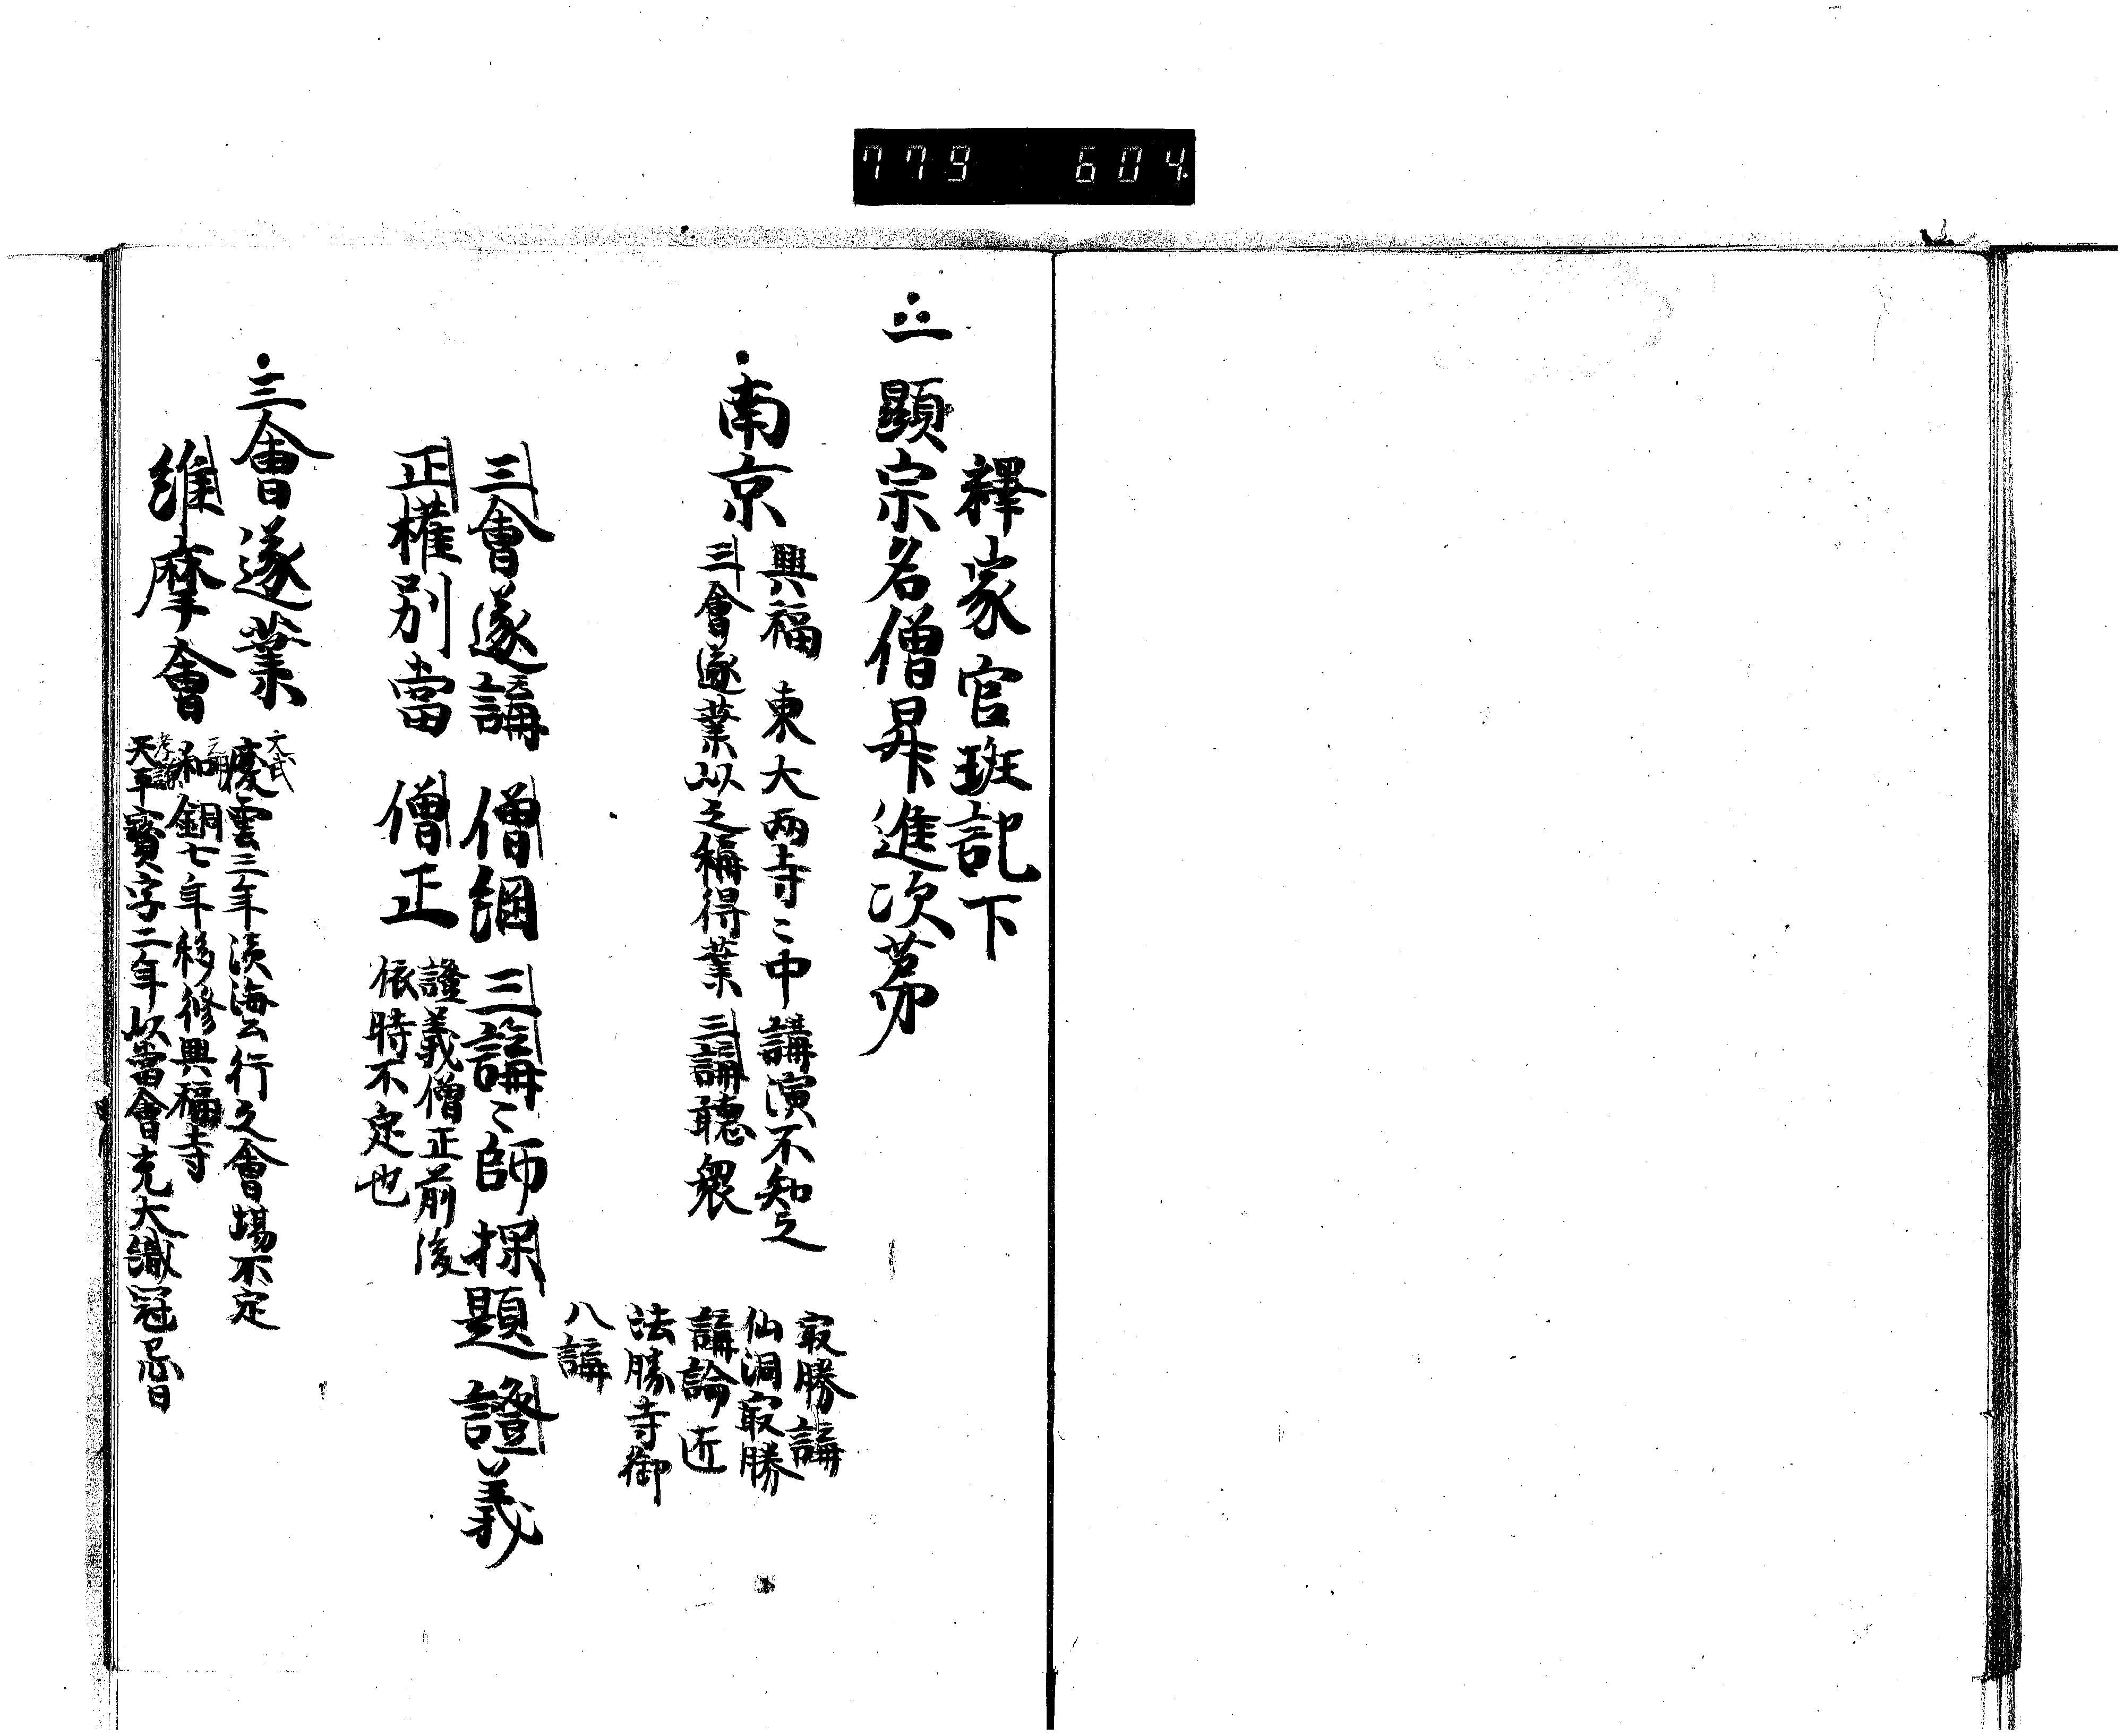 779 604
釋家官班記下
一 顯宗名僧昇進次苐
南京
興福 東大兩寺〻中講演不知之
三會遂業以之稱得業 三講聽衆
㝡勝講
仙洞㝡勝
講論匠
法勝寺御
八講
三會遂講 僧綱 三講〻師 探題 證義
正權別當 僧正
證義僧正前後
依時不定也
三會遂業
維摩會
文武
慶雲三年淡海公行之會場不定
元明
和銅七年移修興福寺
孝謙
天平寶字二年以當會充大織冠忌日